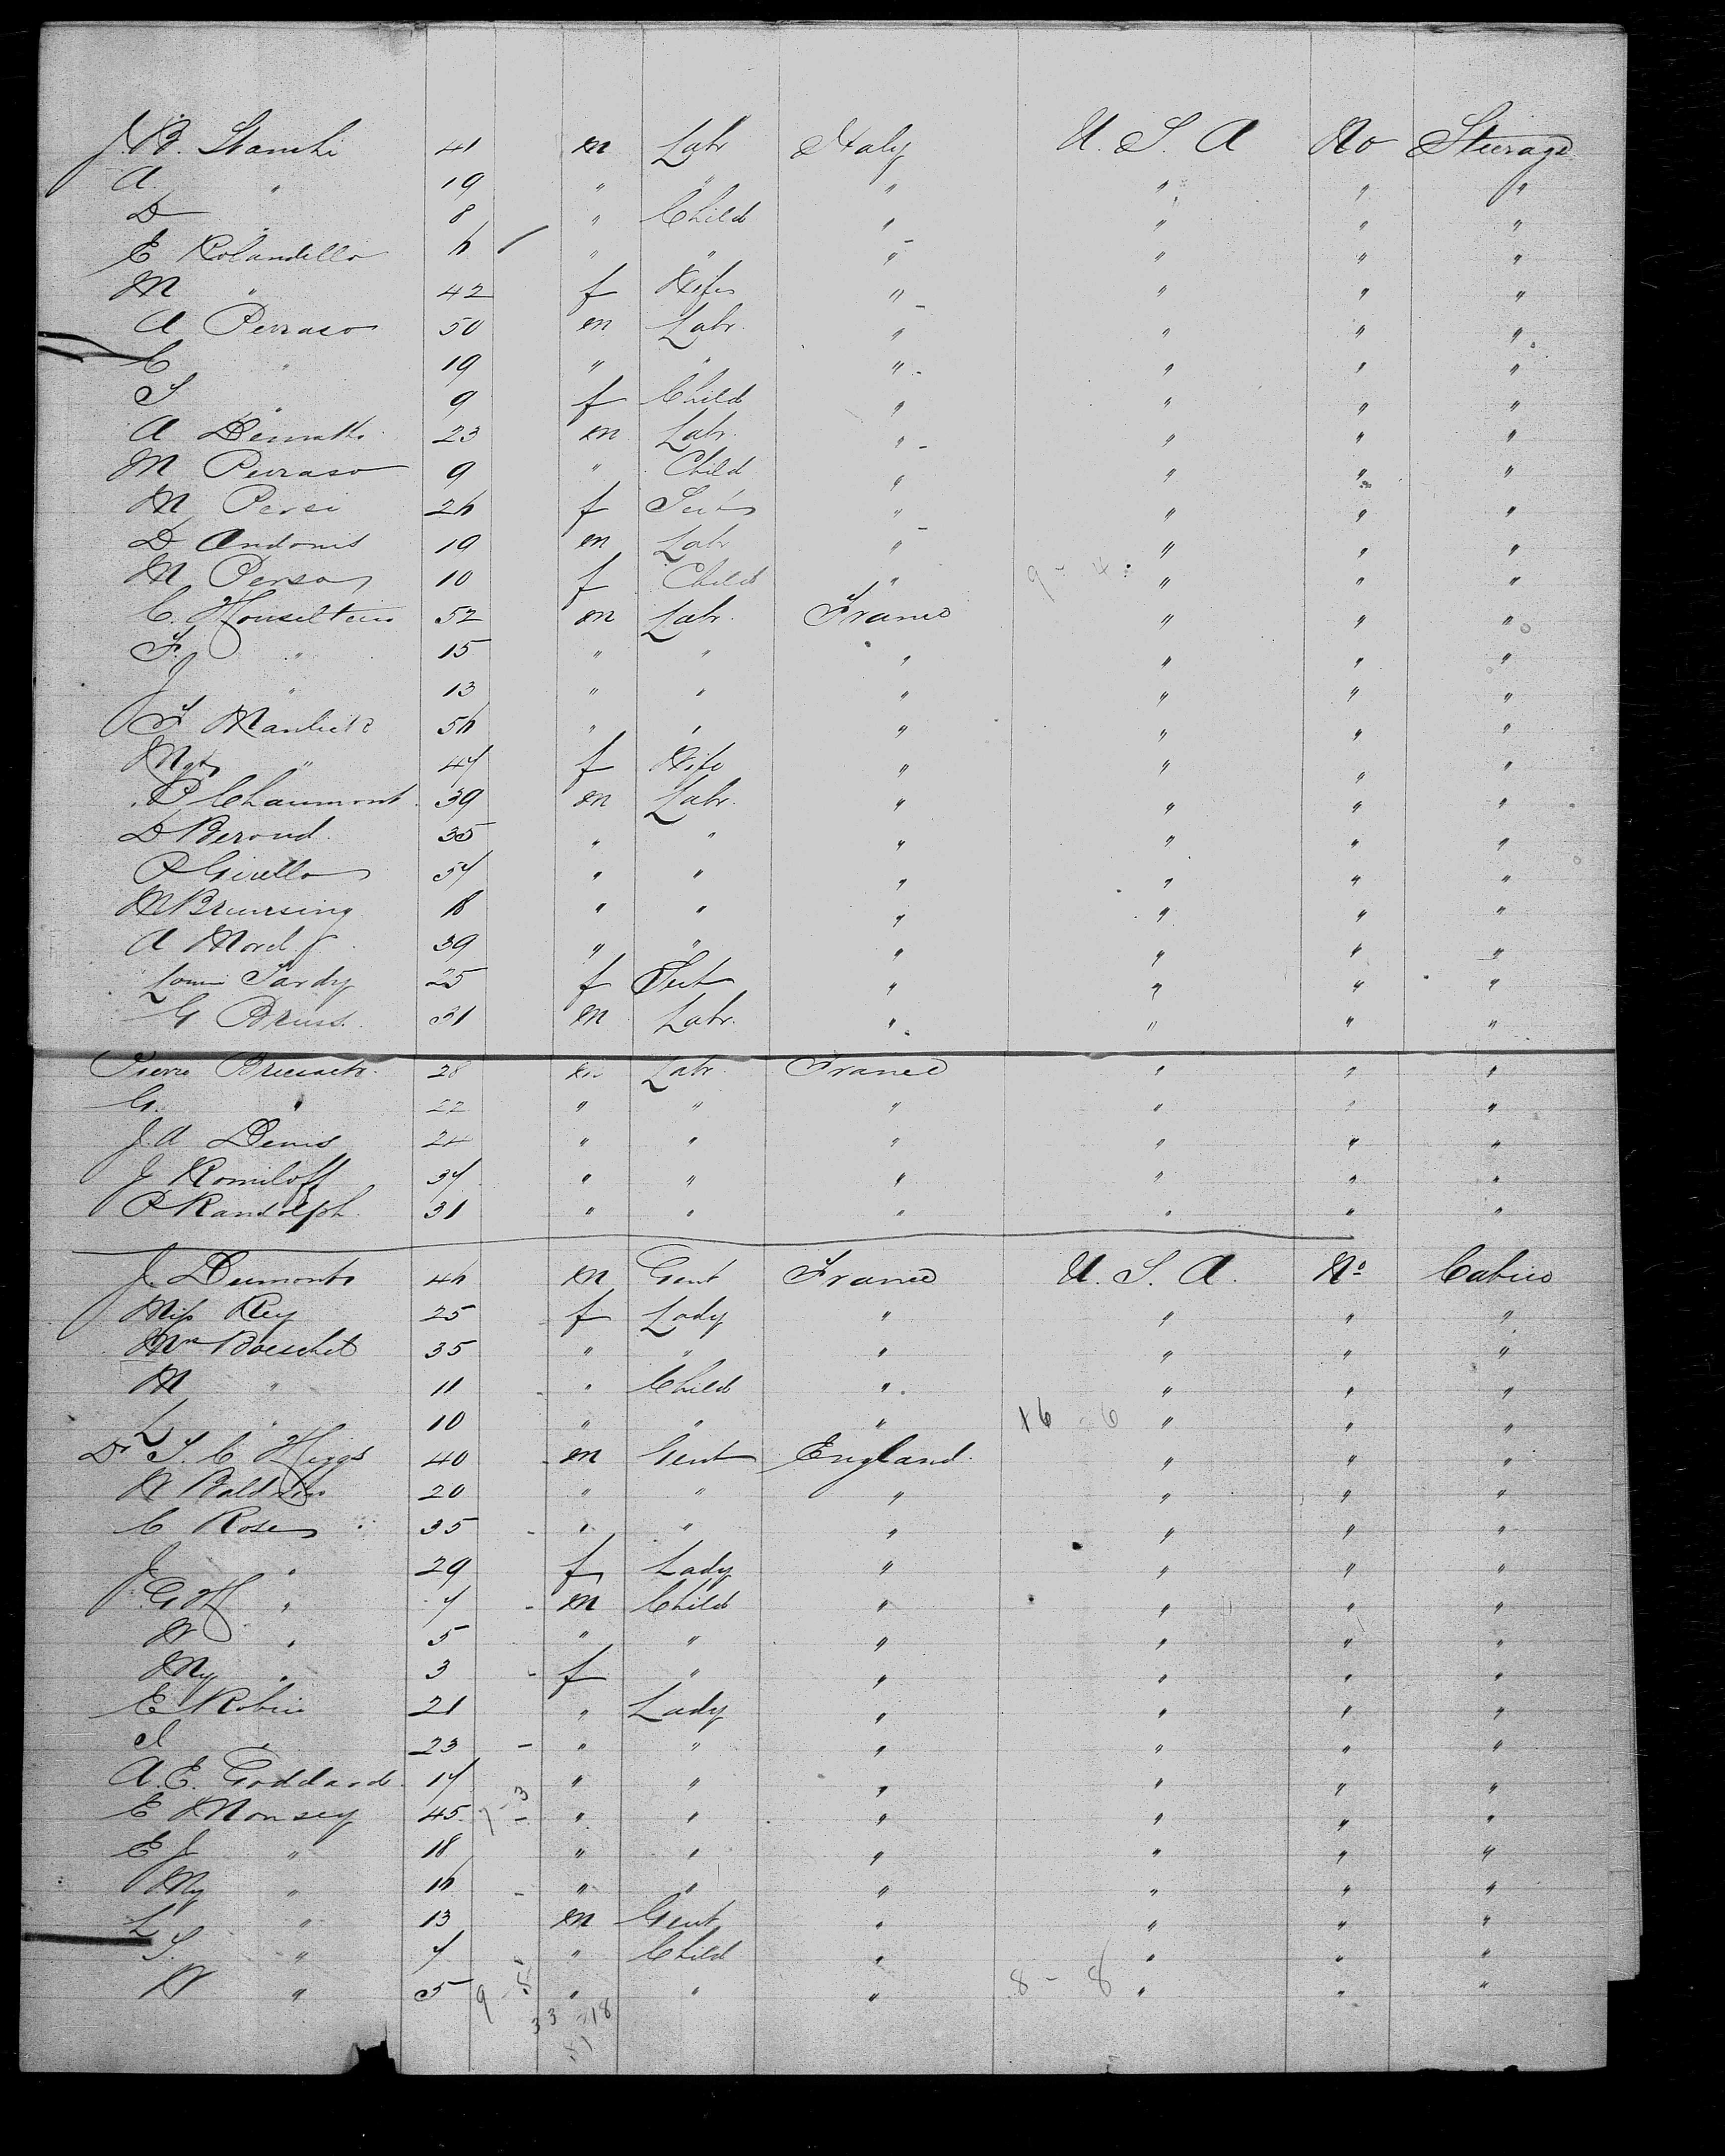 J.B. Stanchi 41 m Labr Italy U.S.A No Steerage
A " 19 " " " " " "
D " 8 " Child " " " "
E Rolandello 6 " " " " " "
M " 42 f Wife " " " "
A Perraso 50 m Labr. " " " "
C " 19 " " " " " "
S " 9 f Child " " " "
A 23 m Labr. " " " "
M Perraso 9 " Child " " " "
M Persi 26 f " " " "
D Andonis 19 m Labr " " " "
M Perso 10 f Child " 9 - 4 " " "
C. 52 m Labr. France " " "
F. " 15 " " " " " "
J " 13 " " " " " "
F 56 " " " " " "
Mgt " 47 f Wife " " " "
P Chaumont 39 m Labr. " " " "
D Beroud 35 " " " " " "
P Girello 57 " " " " " "
M 18 " " " " " "
A Morel 39 " " " " " "
Tardy 25 f " " " "
G Bruss. 31 m Labr. " " " "
Pierre 28 m Labr France " " "
G. " 22 " " " " " "
J.A Denis 24 " " " " " "
J Romiloff 37 " " " " " "
P Randolph 31 " " " " " "
J. Dumont 46 m Gent France U.S.A. No Cabin
Miss Rey 25 f Lady " " " "
Mrs Boeschet 35 " " " " " "
M " 11 " Child " " " "
L " 10 " " " 16 - 6 " " "
Dr S.C Higgs 40 m Gent England " " "
W Baldwin 20 " " " " " "
C Rose 35 " " " " " "
J " 29 f Lady " " " "
G H " 7 m Child " " " "
W " 5 " " " " " "
My " 3 f " " " " "
E Robin 21 " Lady " " " "
I " 23 " " " " " "
A.E. Goddard 17 " " " " " "
E Monsey 45 7 - 3 " " " " " "
E J " 18 " " " " " "
My " 16 " " " " " "
L " 13 m Gent " " " "
S. " 7 " Child " " " "
W " 5 9 - 8 " " " 8 - 8 " " "
33 18
81